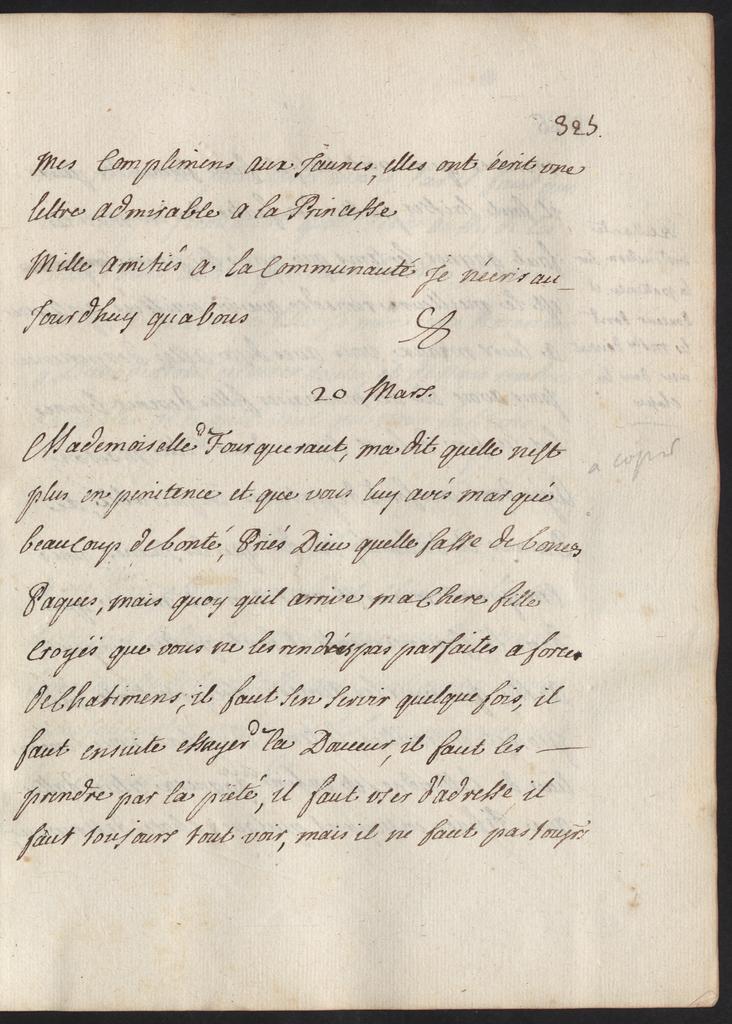 325.
Mes Complimens aux Jaunes, elles ont écrit une
lettre admirable a la Princesse
Mille amitiés a la Communauté Je nécris au_
Jourdhuy quabous
20 Mars.
Mademoiselle de Fourqueraut, ma dit quelle nest
plus en penitence et que vous luy avés marqué
beaucoup de bonté, Priés Dieu quelle fasse de bones
Paques, mais quoy quil arrive ma Chere fille
Croyés que vous ne les rendrés pas parfaites a force
de Chatimens, il faut sen servir quelque fois, il
faut ensuite essayer de la Douceur, il faut les —
prendre par la pieté, il faut user d'adresse il
faut toujours tout voir, mais il ne faut pas toujrs
a copier